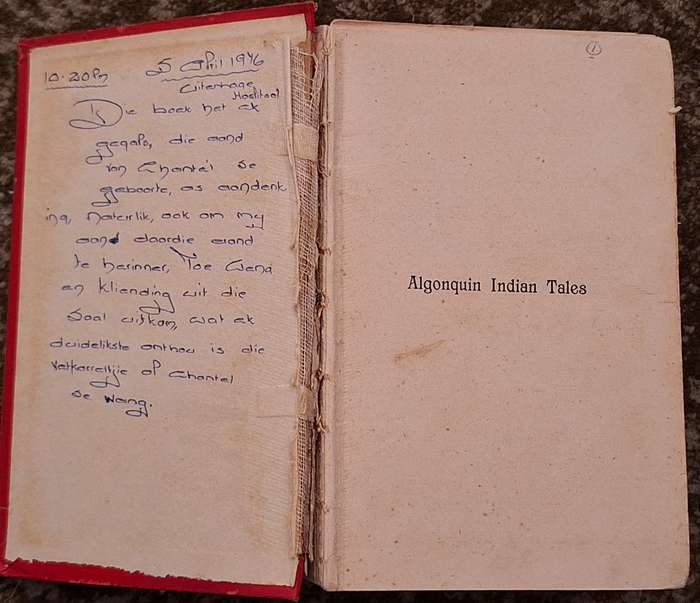 10.20pm 5 April 1976
Uitenhage
Hospitaal
Die boek het ek
gegaps, die aand
van Chantel se
geboorte, as aandenk
ing, natuirlik, ook om my
aan daardie aand
te herinner, Toe Wena
en kliending uit die
Saal uitkom, wat ek
duidelikste onthou is die
vetkarreltjie op Chantel
se wang.
1
Algonquin Indian Tales